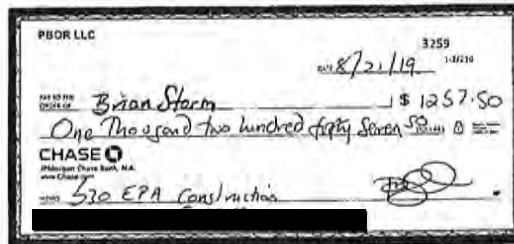 PBOR LLC
3259
DATE 8/21/19
PAY TO THE
ORDER OF Brian Storm $ 1257.50
One Thousand two hundred fifty Seven 50
CHASE
JPMorgan Chase Bank, N.A.
www.Chase.com
MEMO 530 EPA Construction